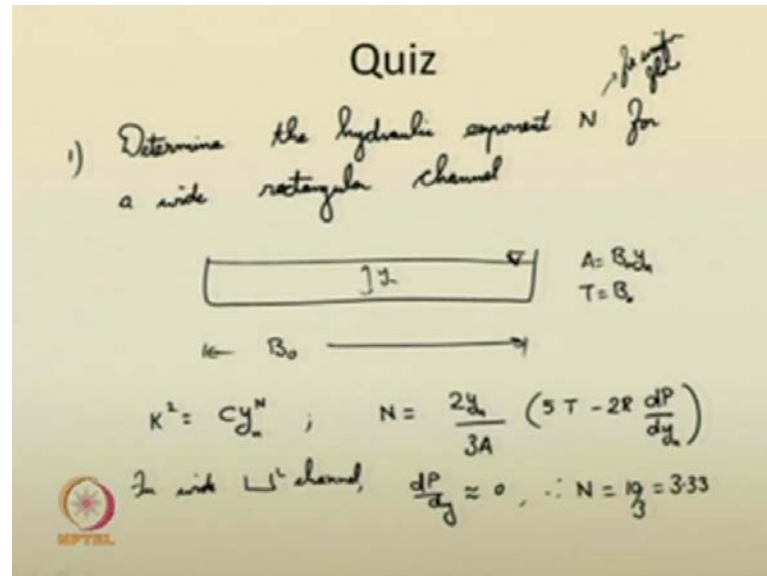 Quiz
for unifm
flow
1) Determine the hydraulic exponent N for
a wide rectangular channel
y
A = B₀yₙ
T = B₀
B₀
K² = Cyₙᴺ ; N = 2yₙ/3A (5T - 2R dP/dyₙ)
In wide ⊔ˡ channel, dP/dy ≈ 0, ∴ N = 10/3 = 3.33
NPTEL